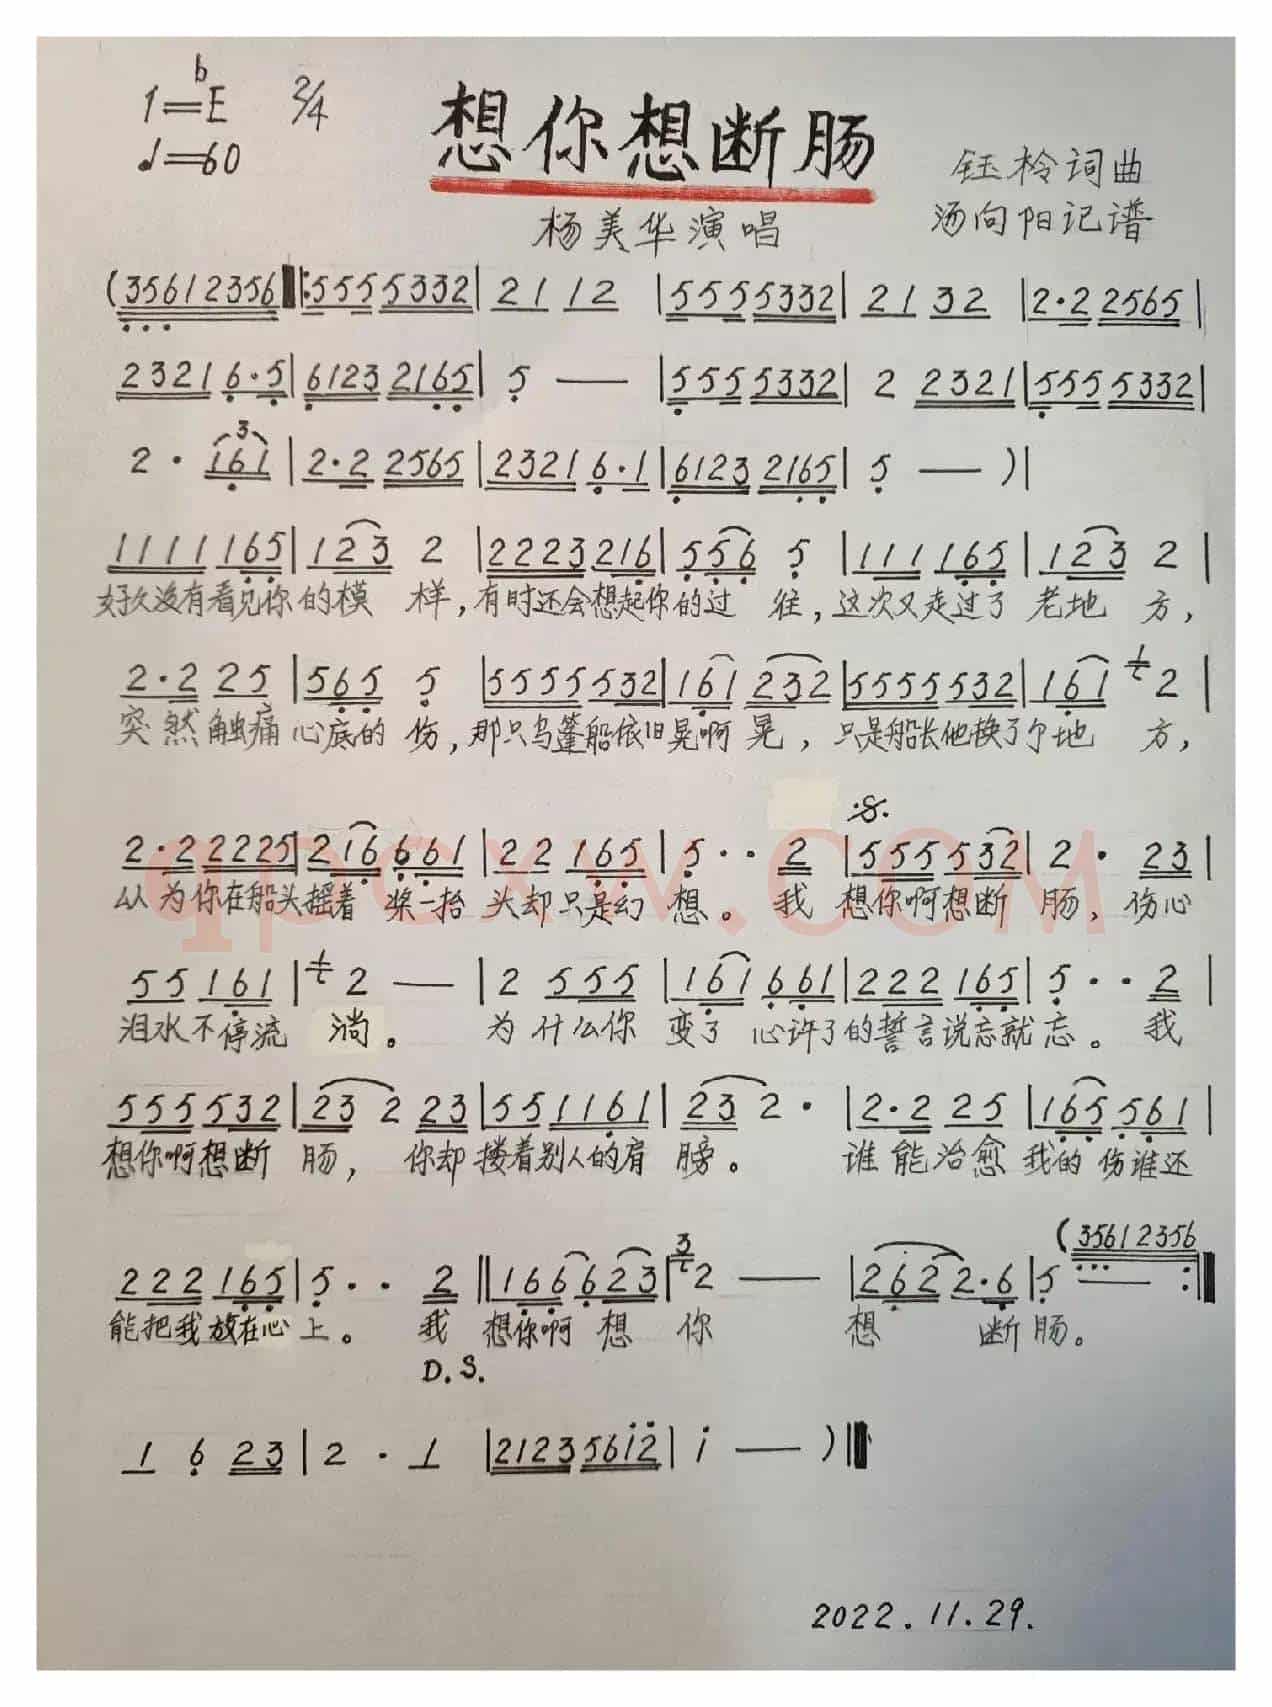 1=♭E 2/4
♩=60
想你想断肠
钰柃词曲
杨美华演唱
汤向阳记谱
(35612356‖:555 5332|21 12|555 5332|21 32|2·2 2565|
2321 6·5|6123 2165|5 —|555 5332|2 2321|555 5332|
2· 161|2·2 2565|2321 6·1|6123 2165|5 —)|
3
1111 165|123 2|2223 216|556 5|111 165|123 2|
好久没有看见你的模样,有时还会想起你的过往,这次又走过了老地方,
2·2 25|565 5|5555 532|161 232|5555 532|161 1 2|
突然触痛心底的伤,那只乌篷船依旧晃啊晃,只是船长他换了个地方,
𝄋
2·2 2225|216 661|22 165|5·· 2|555 532|2· 23|
以为你在船头摇着桨一抬头却只是幻想。我想你啊想断肠,伤心
55 161|1 2 —|2 555|161 661|222 165|5·· 2|
泪水不停流淌。为什么你变了心许了的誓言说忘就忘。我
555 532|23 2 23|55 1161|23 2·|2·2 25|165 561|
想你啊想断肠,你却搂着别人的肩膀。谁能治愈我的伤谁还
(35612356
222 165|5·· 2‖166 623|3 2 —|262 2·6|5 — :‖
能把我放在心上。我想你啊想你想断肠。
D.S.
1 6 23|2· 1|2123 5612|1 —)‖
2022.11.29.
qpcxw.com